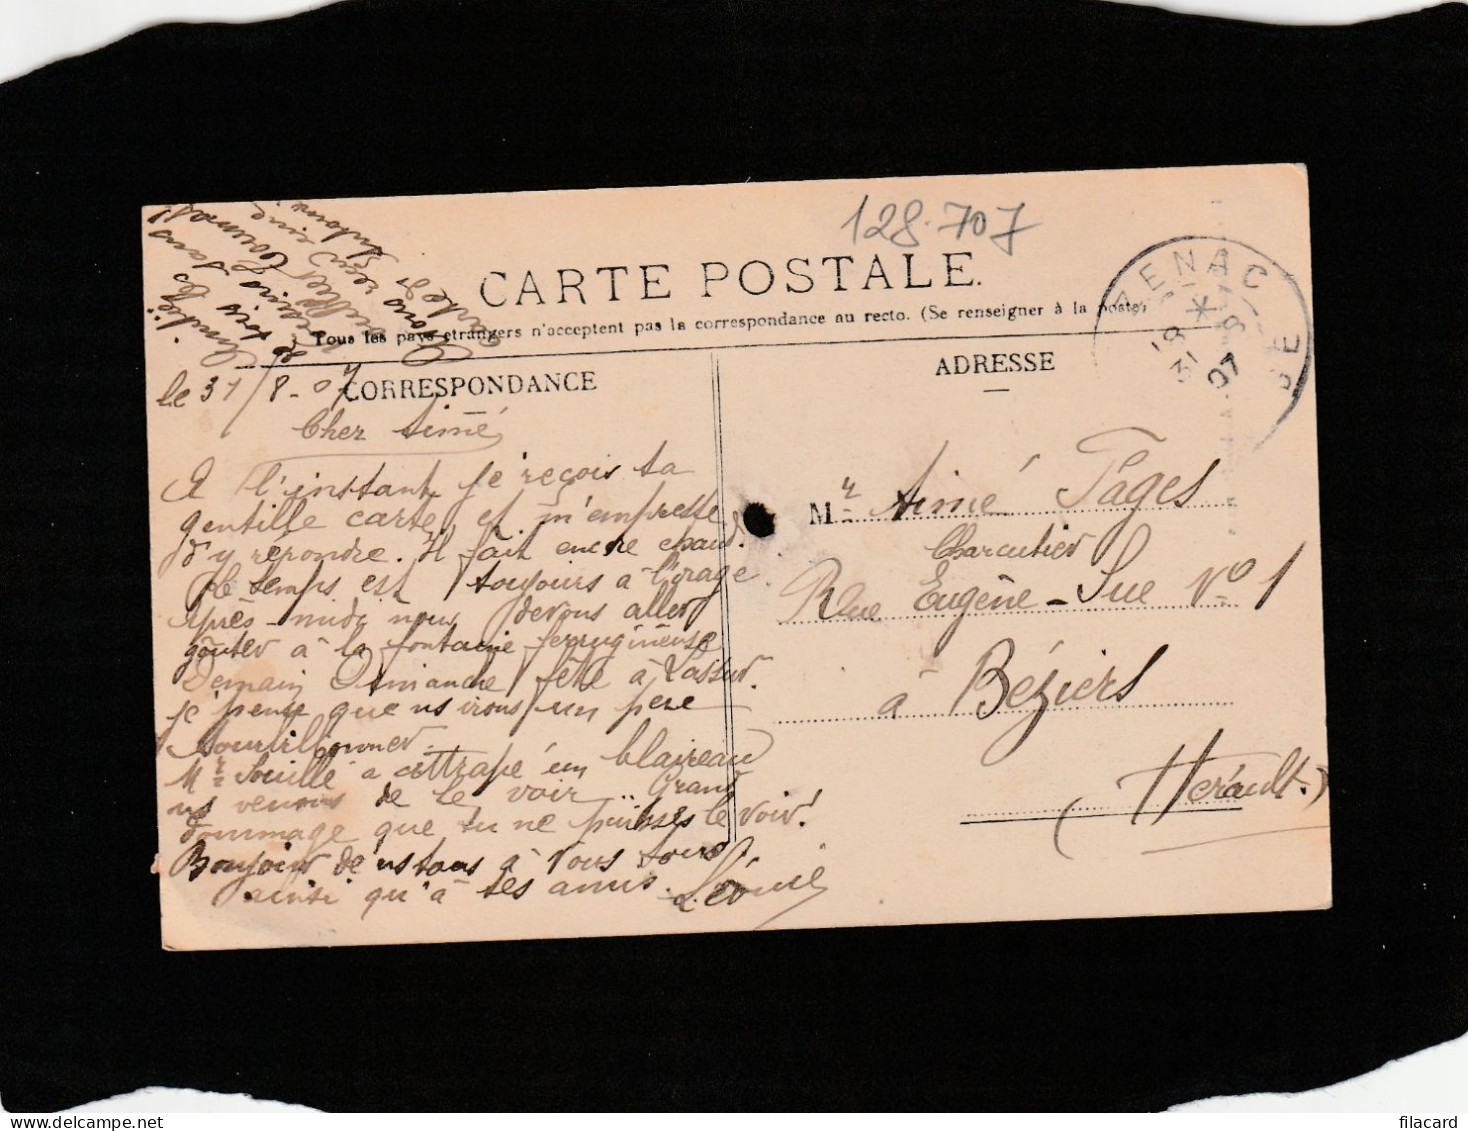 128.707
CARTE POSTALE.
Tous les pays etrangers n'acceptent pas la correspondance au recto. (Se renseigner à la poste)
CORRESPONDANCE
le 31/8-07
Cher Aimé,
A l'instant je reçois ta
gentille carte, et m'empresse
d'y repondre. Il fait encre chaud.
Le temps est toujours a l'orage
Après-midi nous devons aller
goûter à la fontaine ferrugineuse
Demain Dimanche fête à Lassur.
je pense que ns irons un peu
tourbillonner.
Mr Souillé a attrapé un blaireau
ns venons de le voir.. Grand
dommage que tu ne puisses le voir!
Bonjour de ns tous à vous tous
ainsi qu'à tes amis. Léonie
ADRESSE
Mr Aimé Pages
Charcutier
Rue Eugène-Sue No 1
à Béziers
(Herault.)
ZENAC
31 8
07
filacard